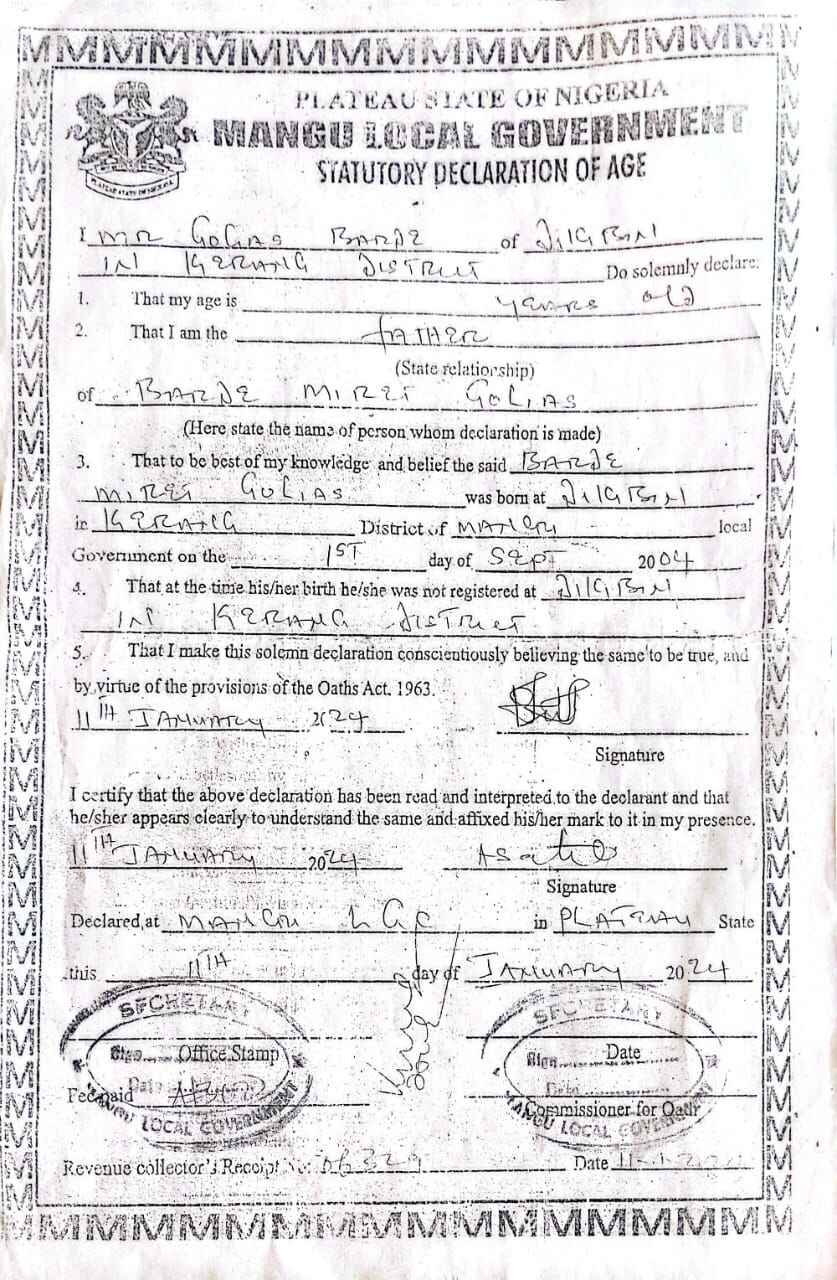 PLATEAU STATE OF NIGERIA
MANGU LOCAL GOVERNMENT
STATUTORY DECLARATION OF AGE
PLATEAU STATE OF NIGERIA
I MR GOLIAS BARDE of JILGBIN
IN KERANG DISTRICT Do solemnly declare:
1. That my age is years old
2. That I am the FATHER
(State relationship)
of BARDE MIRET GOLIAS
(Here state the name of person whom declaration is made)
3. That to be best of my knowledge and belief the said BARDE
MIRET GOLIAS was born at JILGBIN
in KERANG District of MANGU local
Government on the 1ST day of SEPT 2004
4. That at the time his/her birth he/she was not registered at JILGBIN
IN KERANG DISTRICT
5. That I make this solemn declaration conscientiously believing the same to be true, and
by virtue of the provisions of the Oaths Act. 1963.
11TH JANUARY 2024
Signature
I certify that the above declaration has been read and interpreted to the declarant and that
he/sher appears clearly to understand the same and affixed his/her mark to it in my presence.
11TH JANUARY 2024
Signature
Declared at MANGU L G C in PLATEAU State
this 11TH day of JANUARY 2024
SECRETARY
SECRETARY
Sign Office Stamp
Sign Date
Fee paid Date
Date
Commissioner for Oath
MANGU LOCAL GOVERNMENT
MANGU LOCAL GOVERNMENT
Revenue collector's Receipt No: Date